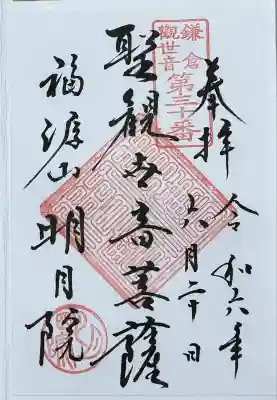 奉拝
令和六年
六月二十日
鎌倉
観世音
第三十番
聖観世音菩薩
福源山
明月院